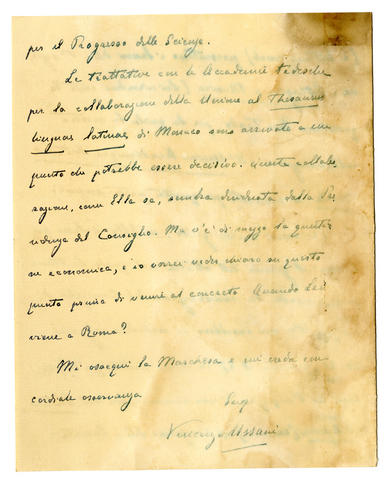 per il Progresso delle Scienze.
Le trattative con le Accademie tedesche
per la collaborazione della Unione al Thesaurus
linguae latinae di Monaco sono arrivate a un
punto che potrebbe essere decisivo. Questa collabo
razione, com'Ella sa, sembra desiderata dalla Pre
sidenza del Consiglio. Ma v'è di mezzo la questio
ne economica, e io vorrei veder chiaro su questo
punto prima di venire al concreto. Quando Lei
viene a Roma?
Mi ossequi la Marchesa e mi creda con
cordiale osservanza
Vincenzo Ussani